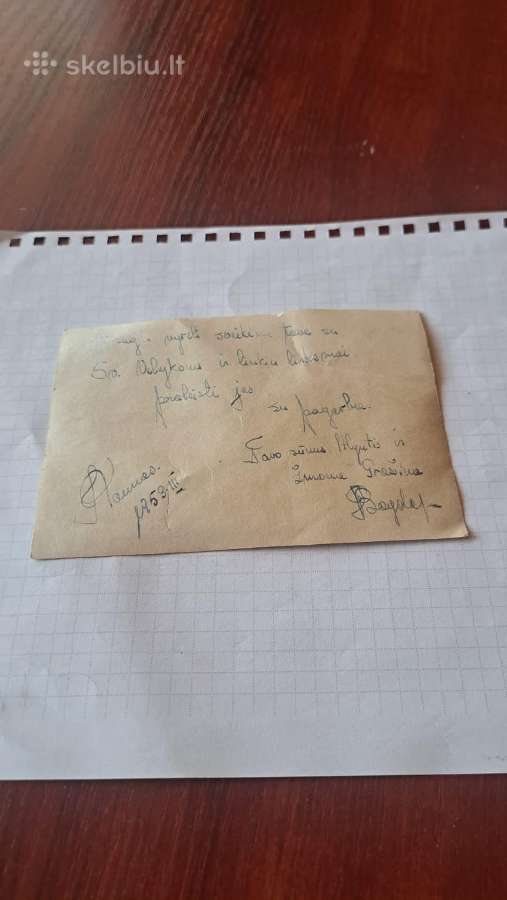 skelbiu.lt
vyrėli sveikinu tave su
Šv. Velykomis ir linkiu linksmai
praleisti jas
su pagarba.
Tavo sūnus Algutis ir
žmona Gražina
Kaunas
1953.III